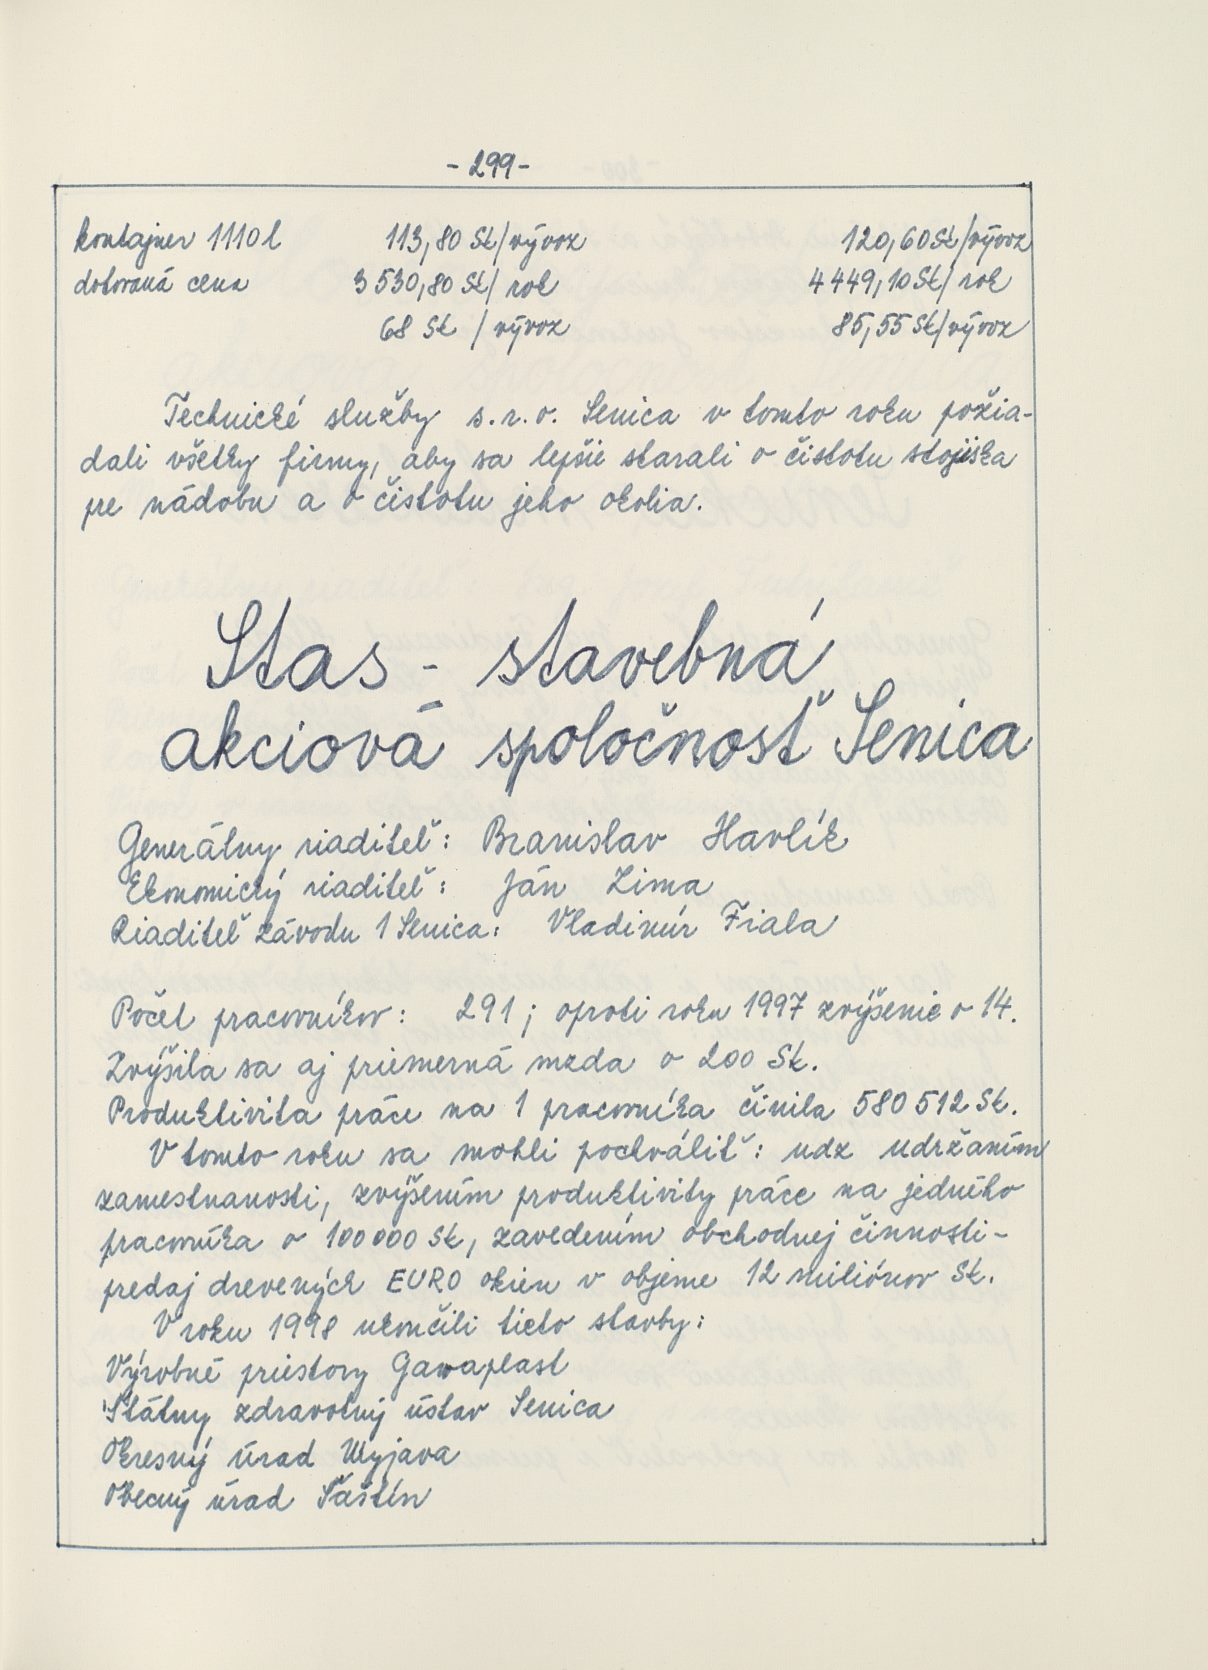 - 299 -
kontajner 1110 l 113,80 Sk/vývoz 120,60 Sk/vývoz
dotovaná cena 3 530,80 Sk/ rok 4 449,10 Sk/ rok
68 Sk / vývoz 85,55 Sk/vývoz
Technické služby s.r.o. Senica v tomto roku požia-
dali všetky firmy, aby sa lepšie starali o čistotu stojiska
pre nádobu a o čistotu jeho okolia.
Stas - stavebná
akciová spoločnosť Senica
Generálny riaditeľ: Branislav Havlík
Ekonomický riaditeľ: Ján Zima
Riaditeľ závodu 1 Senica: Vladimír Fiala
Počet pracovníkov: 291; oproti roku 1997 zvýšenie o 14.
Zvýšila sa aj priemerná mzda o 200 Sk.
Produktivita práce na 1 pracovníka činila 580 512 Sk.
V tomto roku sa mohli pochváliť: udz udržaním
zamestnanosti, zvýšením produktivity práce na jedného
pracovníka o 100 000 Sk, zavedením obchodnej činnosti -
predaj drevených EURO okien v objeme 12 miliónov Sk.
V roku 1998 ukončili tieto stavby:
Výrobné priestory Gawaplast
Štátny zdravotný ústav Senica
Okresný úrad Myjava
Obecný úrad Šaštín